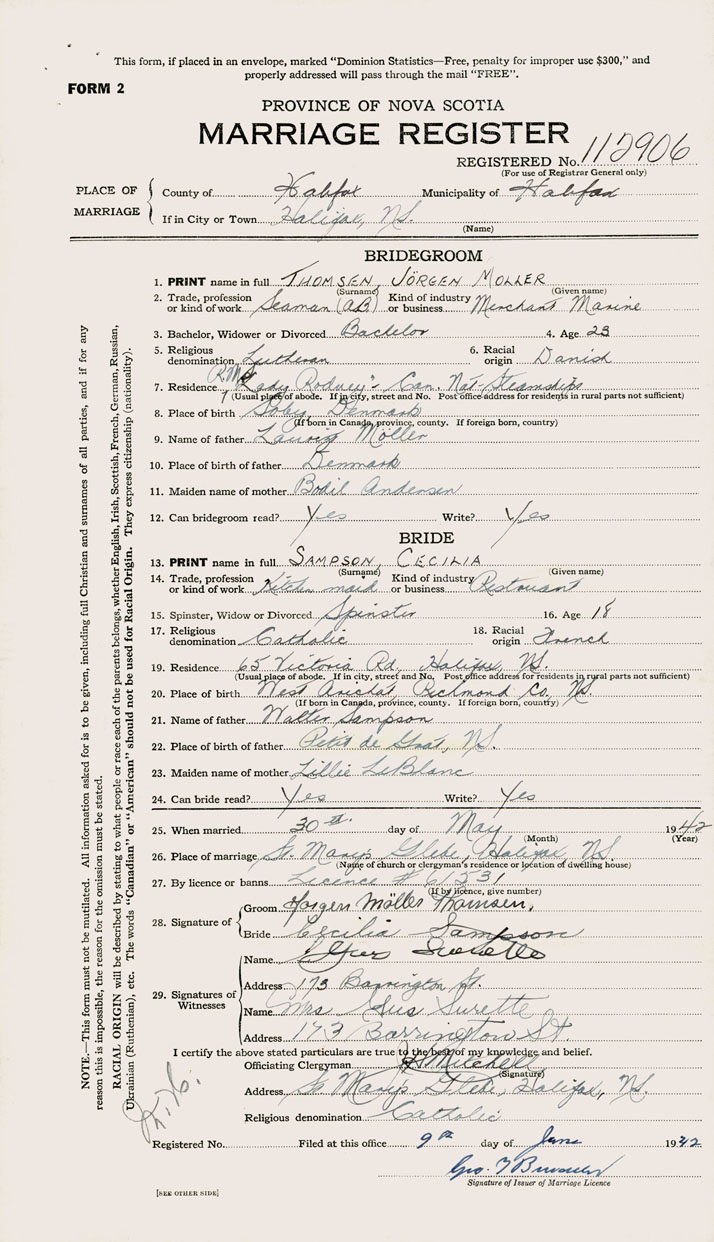 This form, if placed in an envelope, marked “Dominion Statistics—Free, penalty for improper use $300,” and
properly addressed will pass through the mail “FREE”.
FORM 2
PROVINCE OF NOVA SCOTIA
MARRIAGE REGISTER
REGISTERED No. 112906
(For use of Registrar General only)
PLACE OF MARRIAGE
County of Halifax Municipality of Halifax
If in City or Town Halifax, N.S.
(Name)
BRIDEGROOM
1. PRINT name in full THOMSEN, JÖRGEN MOLLER
(Surname) (Given name)
2. Trade, profession or kind of work Seaman (AB) Kind of industry or business Merchant Marine
3. Bachelor, Widower or Divorced Bachelor 4. Age 23
5. Religious denomination Lutheran 6. Racial origin Danish
7. Residence R.M.S. "Lady Rodney" - Can. Nat. Steamships
(Usual place of abode. If in city, street and No. Post office address for residents in rural parts not sufficient)
8. Place of birth Soby, Denmark
(If born in Canada, province, county. If foreign born, country)
9. Name of father Lauvig Möller
10. Place of birth of father Denmark
11. Maiden name of mother Bodil Andersen
12. Can bridegroom read? Yes Write? Yes
BRIDE
13. PRINT name in full SAMPSON, CECILIA
(Surname) (Given name)
14. Trade, profession or kind of work Kitchen maid Kind of industry or business Restruant
15. Spinster, Widow or Divorced Spinster 16. Age 18
17. Religious denomination Catholic 18. Racial origin French
19. Residence 65 Victoria Rd, Halifax, N.S.
(Usual place of abode. If in city, street and No. Post office address for residents in rural parts not sufficient)
20. Place of birth West Arichat, Richmond Co. N.S.
(If born in Canada, province, county. If foreign born, country)
21. Name of father Walter Sampson
22. Place of birth of father Petit de Grat, N.S.
23. Maiden name of mother Lillie LeBlanc
24. Can bride read? Yes Write? Yes
25. When married 30th day of May 1942
(Month) (Year)
26. Place of marriage St. Mary's Glebe, Halifax, N.S.
(Name of church or clergyman's residence or location of dwelling house)
27. By licence or banns Licence # 61531
(If by licence, give number)
28. Signature of
Groom Jorgen Möller Thomsen,
Bride Cecilia Sampson
29. Signatures of Witnesses
Name Surette
Address 173 Barrington St.
Name Mrs Gus Surette
Address 173 Barrington St.
I certify the above stated particulars are true to the best of my knowledge and belief.
Officiating Clergyman Mitchell
(Signature)
Address St Mary's Glebe, Halifax, N.S.
Religious denomination Catholic
Registered No. Filed at this office 9th day of June 1942
Geo.
Signature of Issuer of Marriage Licence
[SEE OTHER SIDE]
NOTE.—This form must not be mutilated. All information asked for is to be given, including full Christian and surnames of all parties, and if for any
reason this is impossible, the reason for the omission must be stated.
RACIAL ORIGIN will be described by stating to what people or race each of the parents belongs, whether English, Irish, Scottish, French, German, Russian,
Ukrainian (Ruthenian), etc. The words “Canadian” or “American” should not be used for Racial Origin. They express citizenship (nationality).